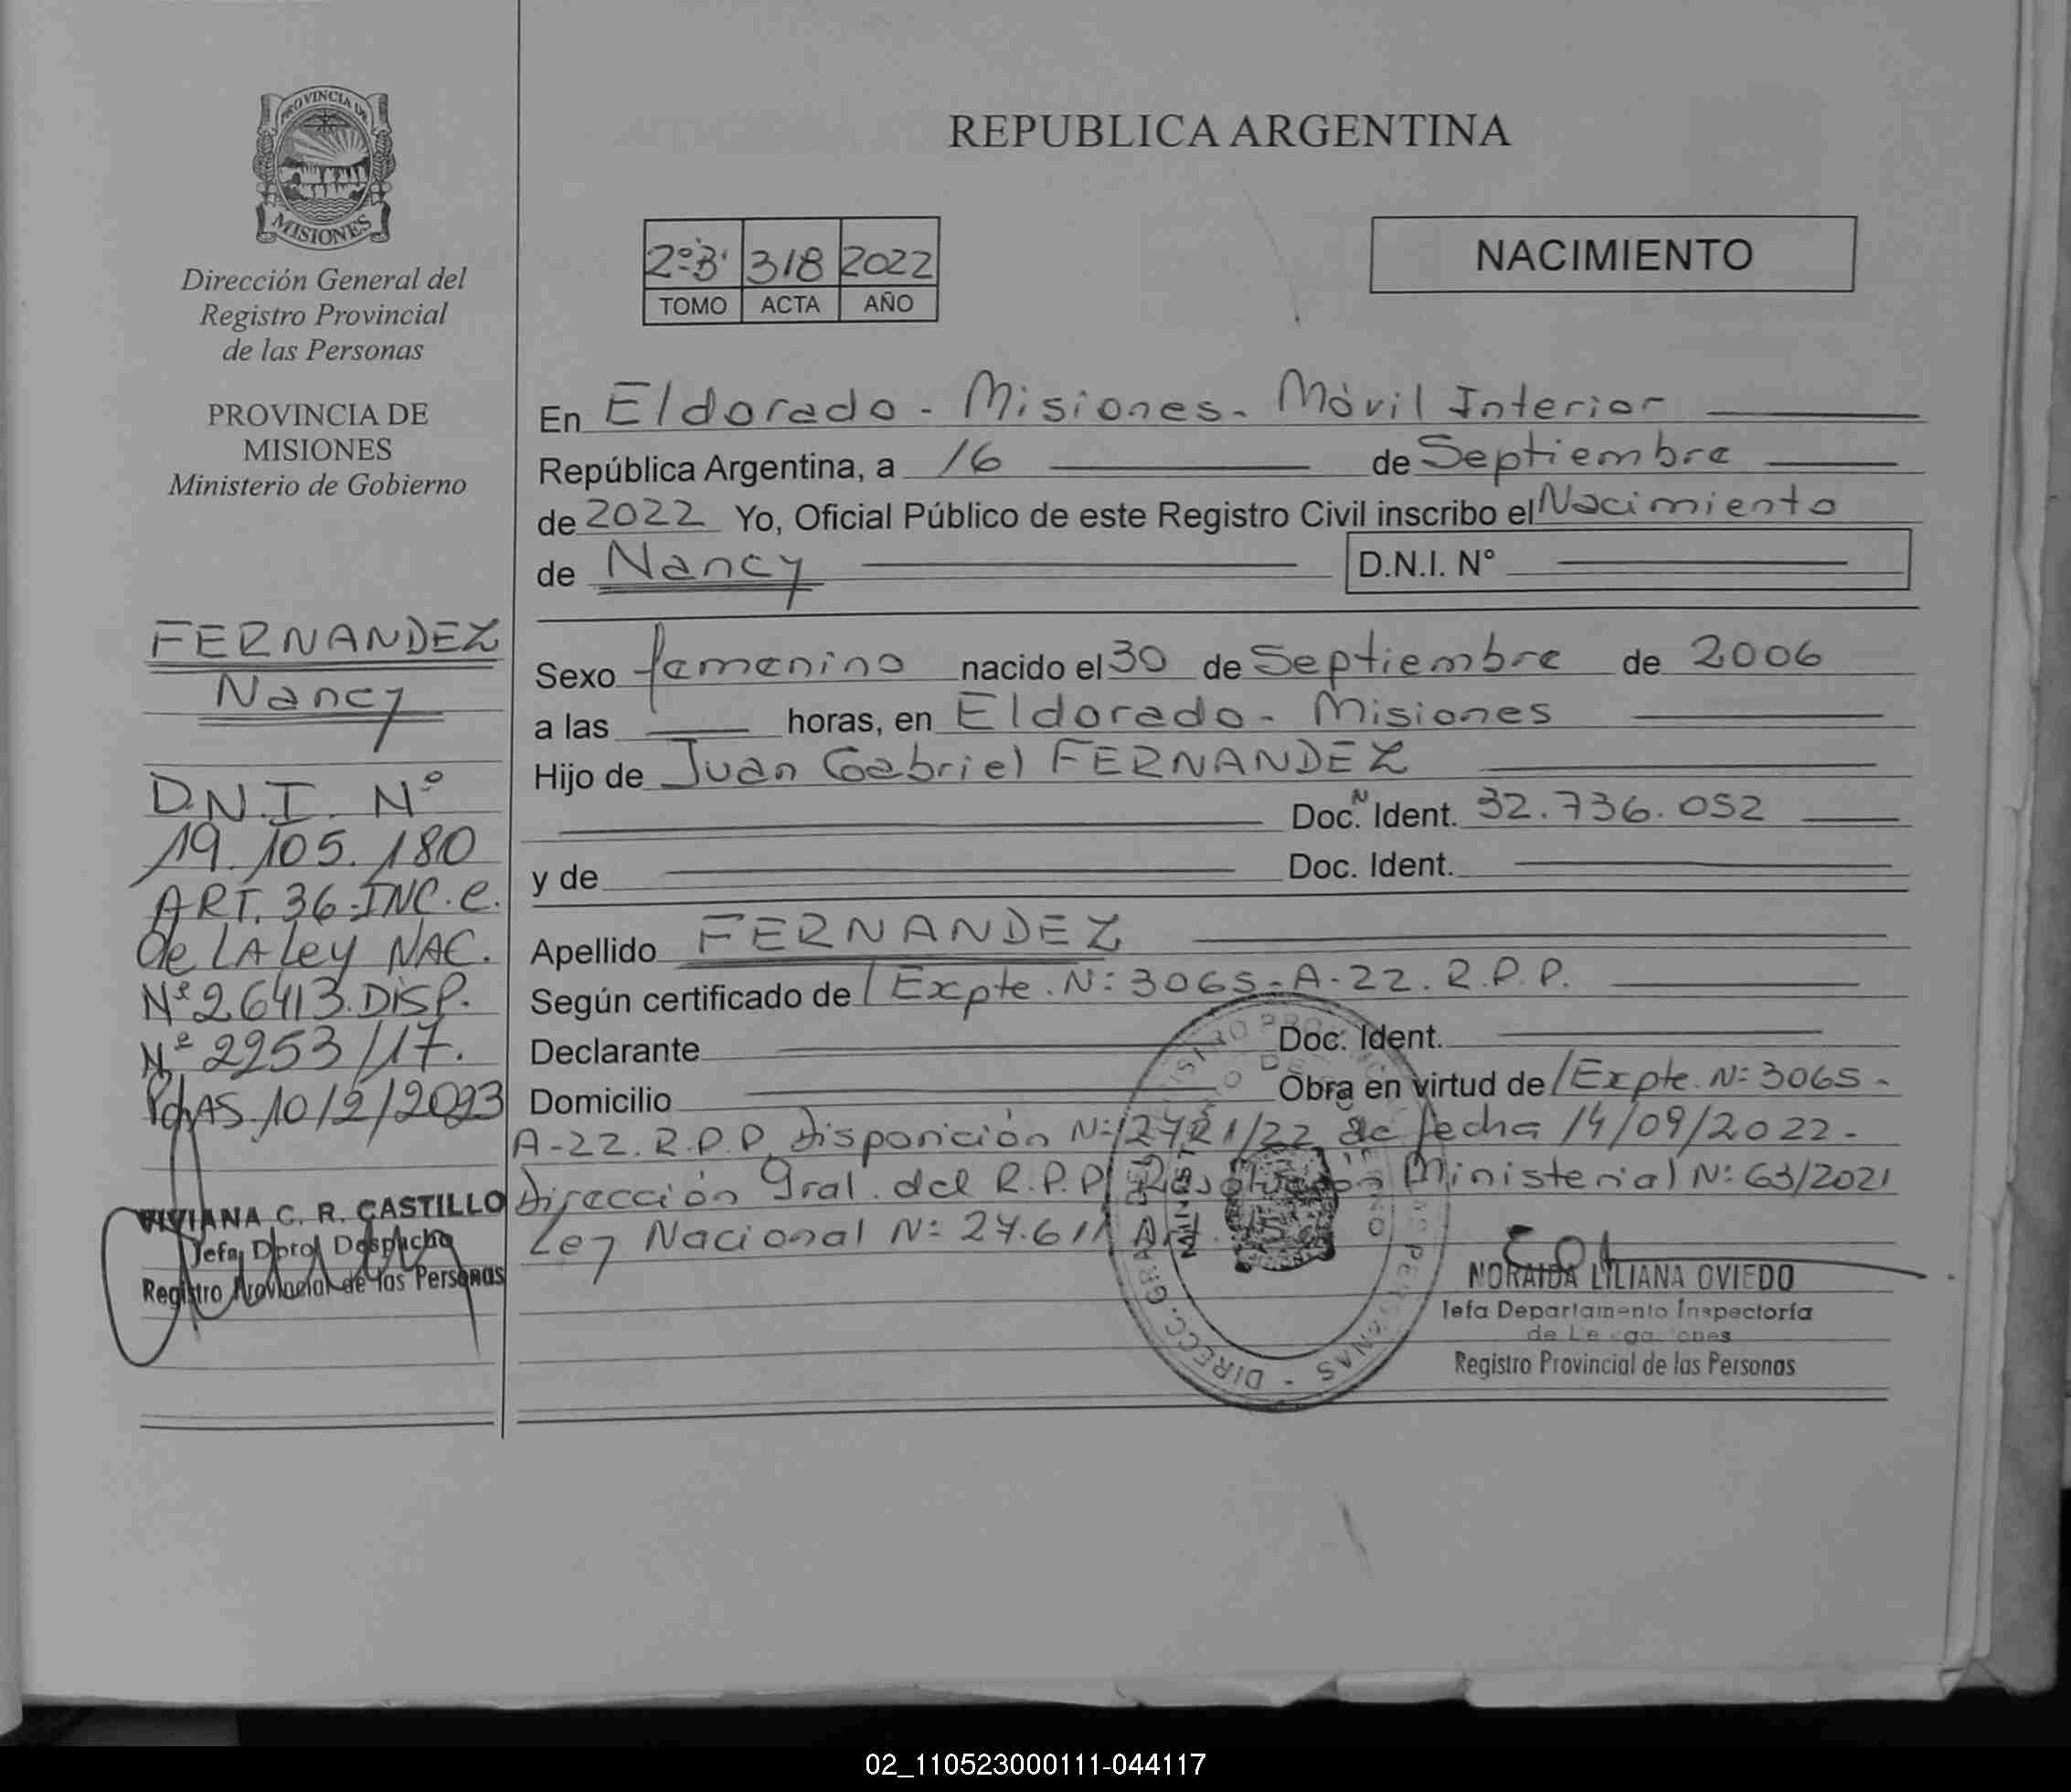 PROVINCIA DE
MISIONES
Dirección General del
Registro Provincial
de las Personas
PROVINCIA DE
MISIONES
Ministerio de Gobierno
FERNANDEZ
Nancy
D.N.I. Nº
19.105.180
ART. 36-INC.e.
de LA Ley NAC.
Nº 26413. DISP.
Nº 2953/17.
Pdas 10/2/2023
VIVIANA C. R. CASTILLO
Jefa Dpto Despacho
Registro Provincial de las Personas
REPUBLICA ARGENTINA
2º"B" 318 2022
TOMO ACTA AÑO
NACIMIENTO
En Eldorado - Misiones - Móvil Interior
República Argentina, a 16 de Septiembre
de 2022 Yo, Oficial Público de este Registro Civil inscribo el Nacimiento
de Nancy D.N.I. Nº
Sexo femenino nacido el 30 de Septiembre de 2006
a las horas, en Eldorado - Misiones
Hijo de Juan Gabriel FERNANDEZ
Doc. N Ident. 32.736.052
y de Doc. Ident.
Apellido FERNANDEZ
Según certificado de / Expte. N: 3065-A-22. R.P.P.
Declarante Doc. Ident.
Domicilio Obra en virtud de / Expte. N: 3065-
A-22. R.P.P. Disposición N: de fecha 14/09/2022-
Dirección Gral. del R.P.P. Resolución Ministerial N: 63/2021
Ley Nacional N: 27.611 Art.
DIRECC. GRAL. DEL REGISTRO PROVINCIAL DE LAS PERSONAS -
NORAIDA LILIANA OVIEDO
Jefa Departamento Inspectoría
de Delegaciones
Registro Provincial de las Personas
02_110523000111-044117